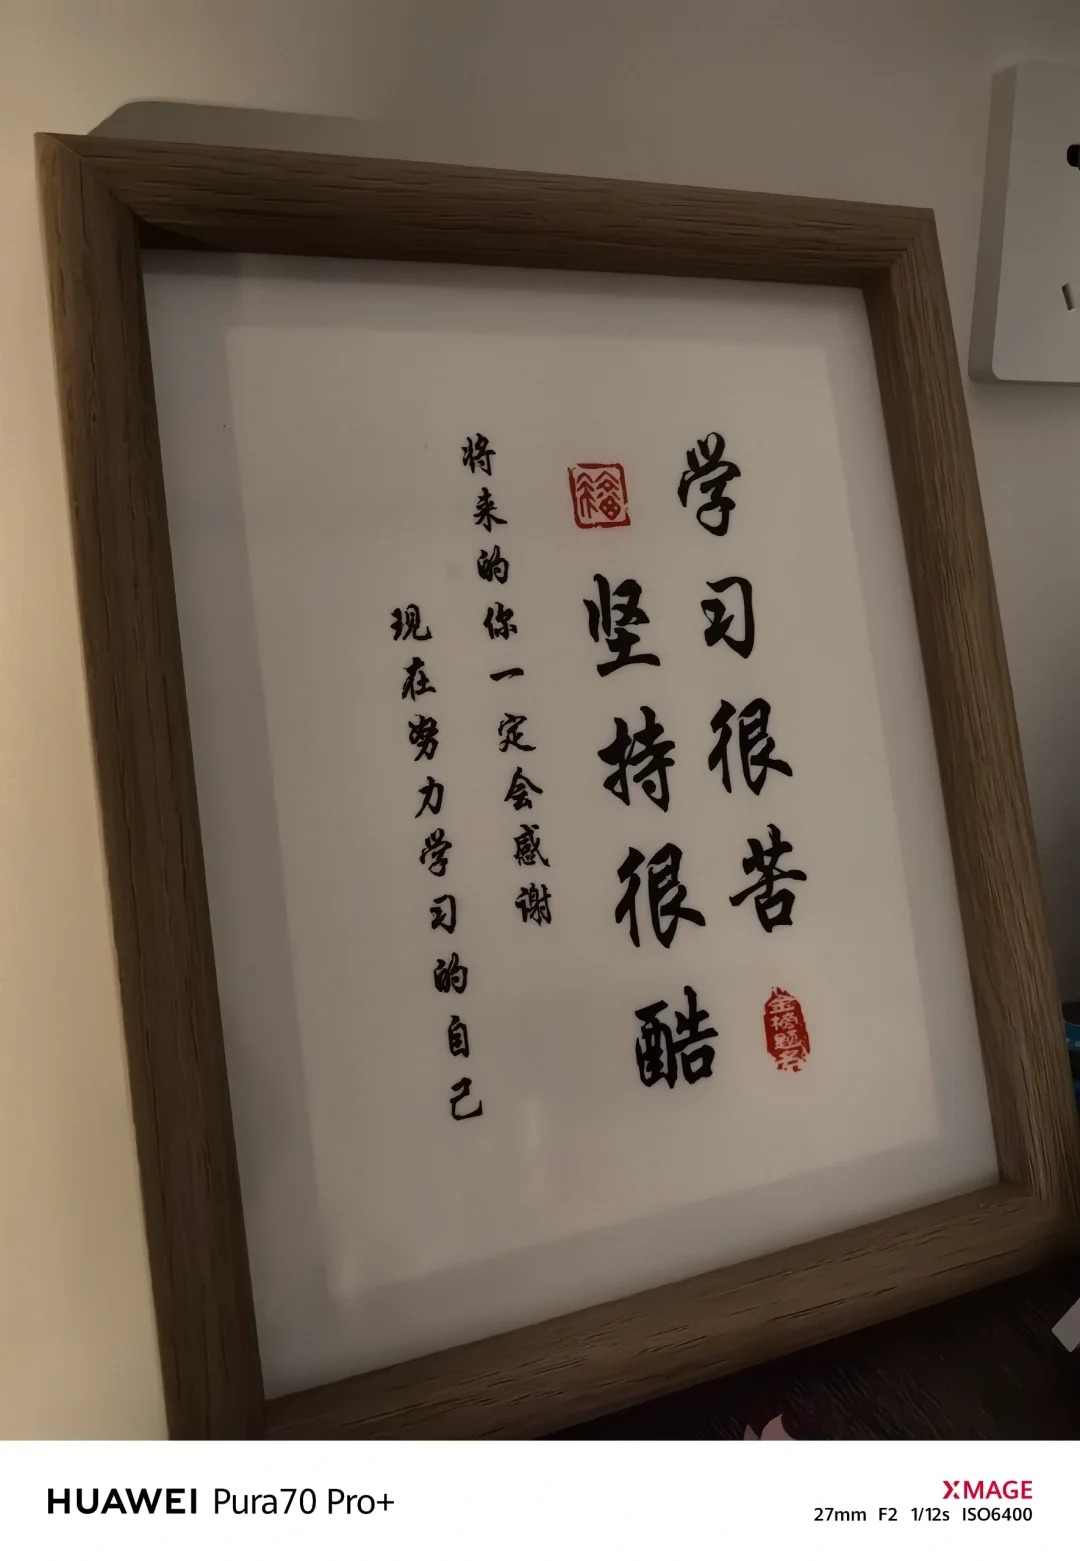 学习很苦
金榜题名
福
坚持很酷
将来的你一定会感谢
现在努力学习的自己
HUAWEI Pura70 Pro+
XMAGE
27mm F2 1/12s ISO6400